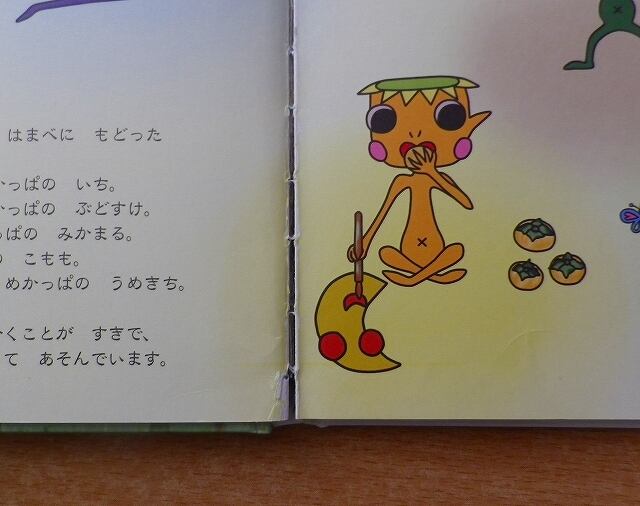 はまべに もどった
かっぱの いち。
かっぱの ぶどすけ。
っぱの みかまる。
の こもも。
めかっぱの うめきち。
くことが すきで、
て あそんでいます。